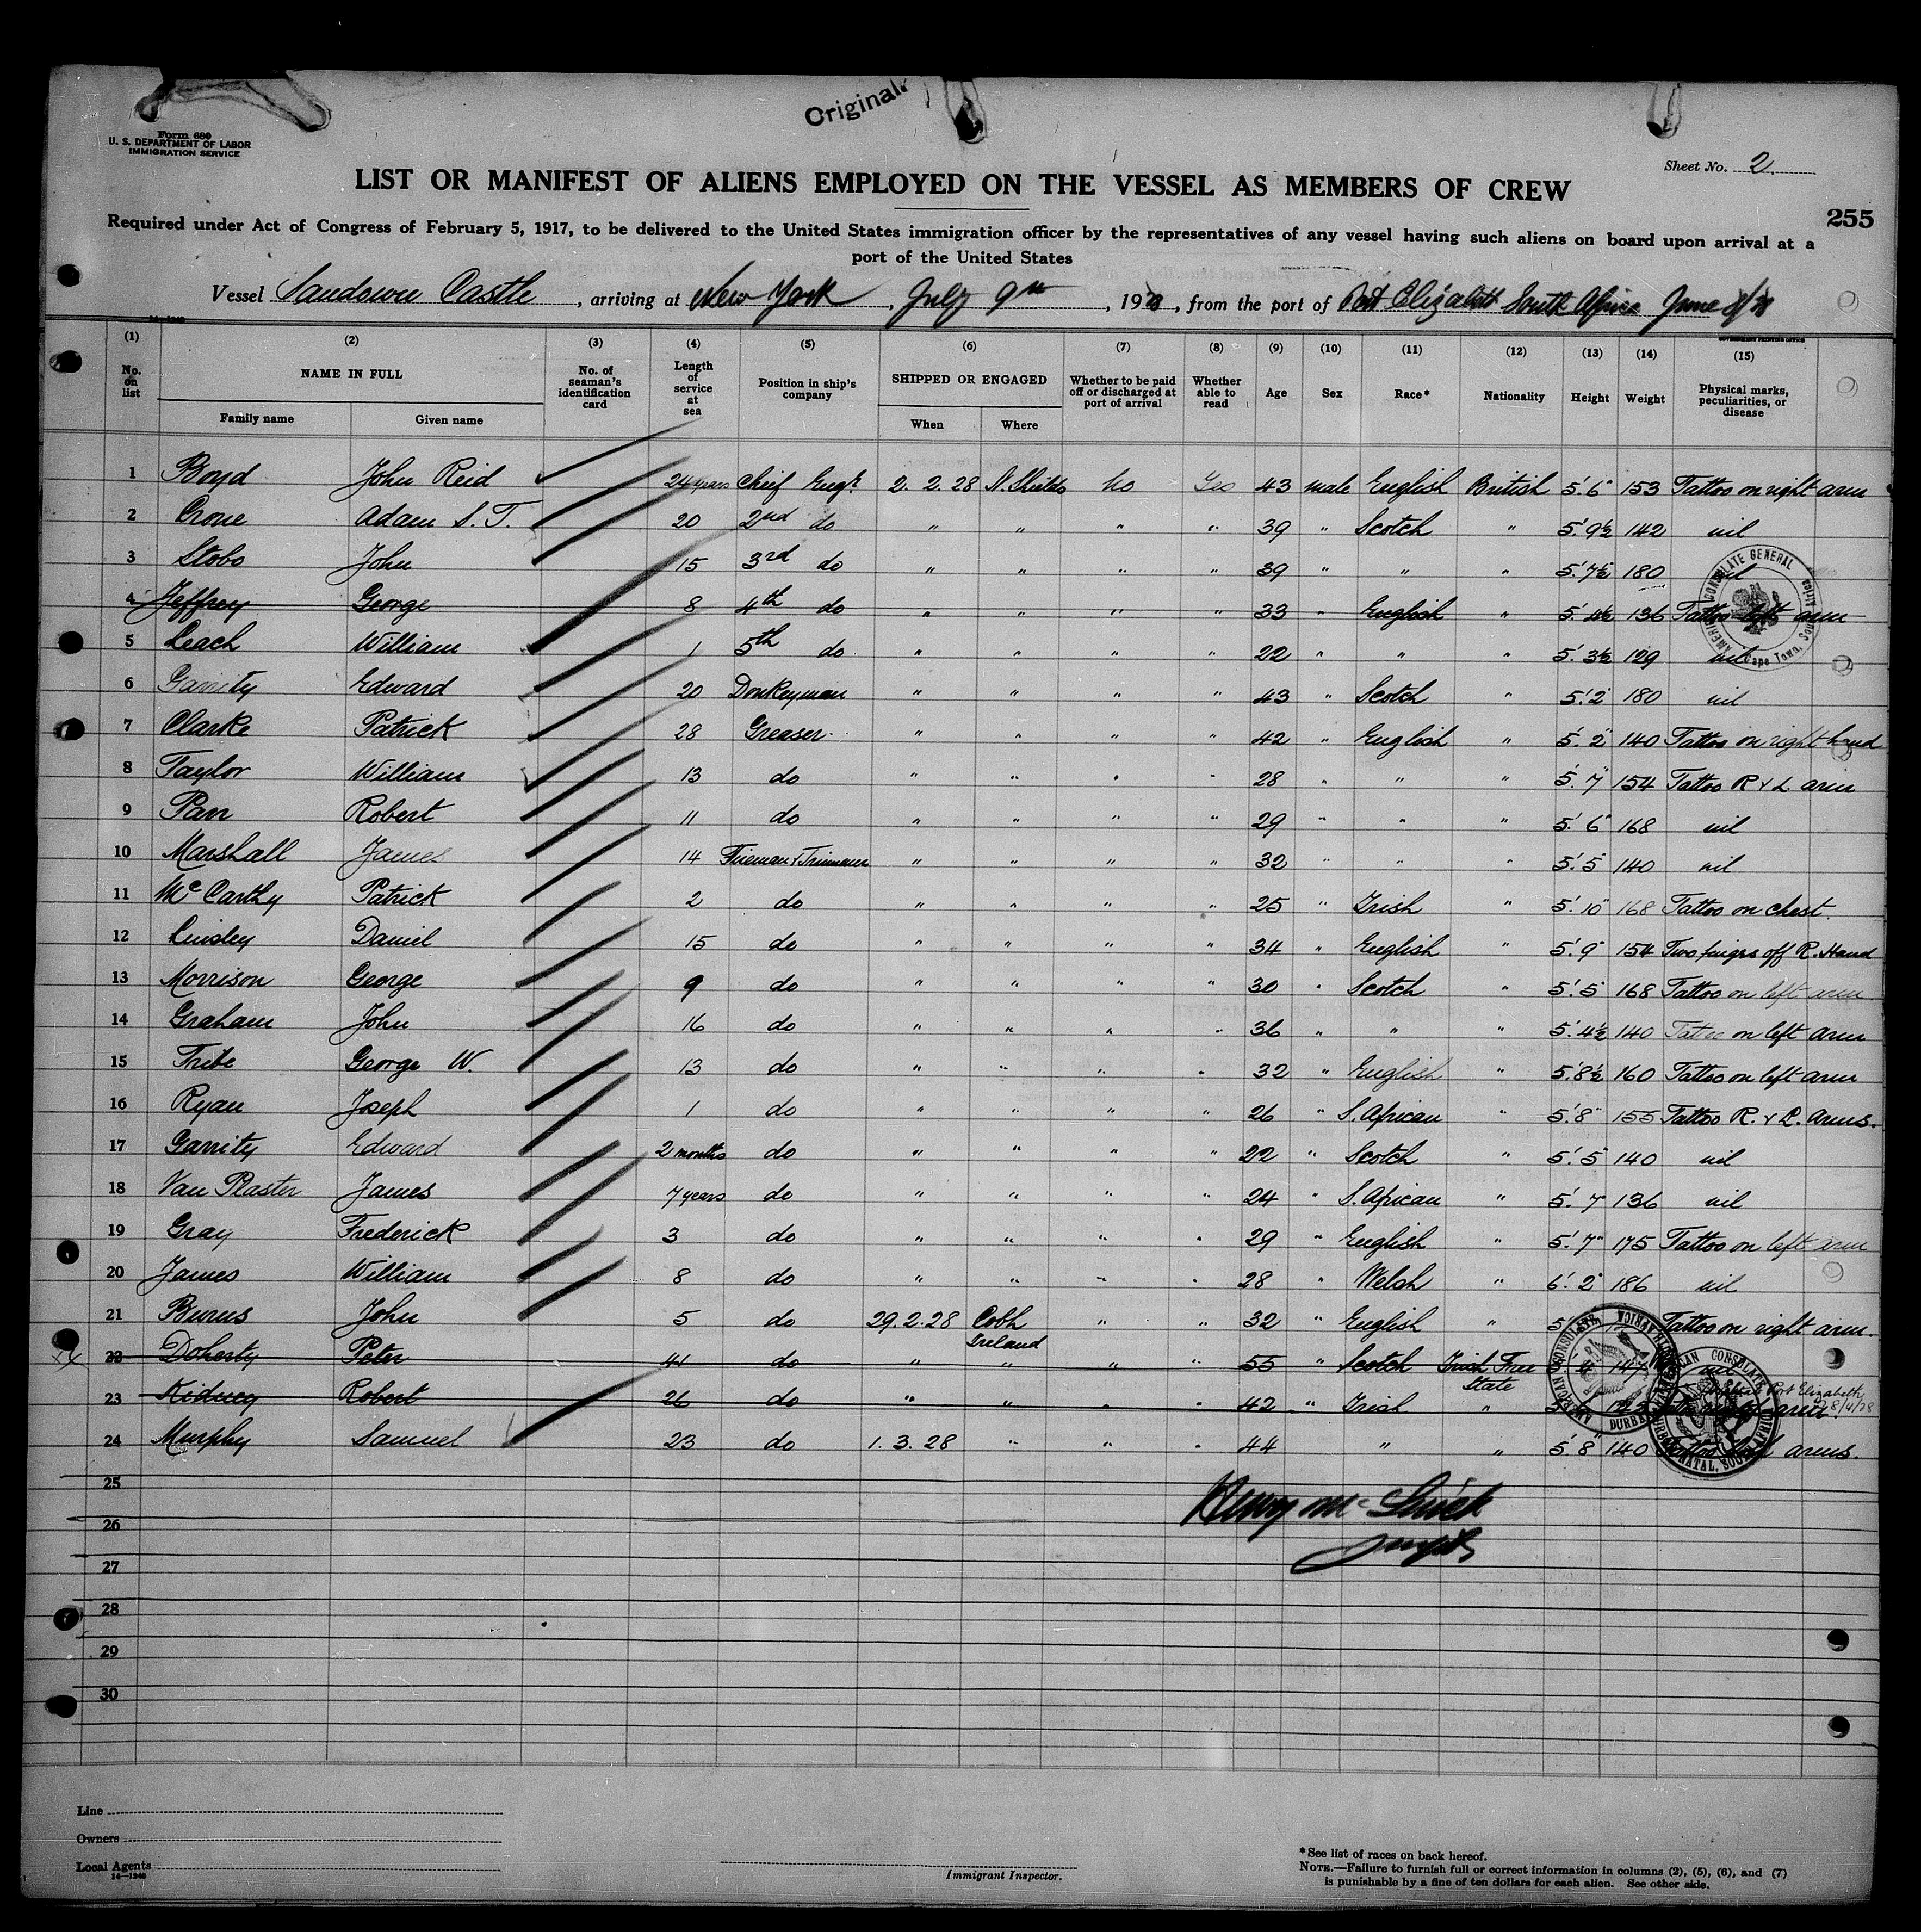 Original
Form 680
U. S. DEPARTMENT OF LABOR
IMMIGRATION SERVICE
Sheet No. 2.
LIST OR MANIFEST OF ALIENS EMPLOYED ON THE VESSEL AS MEMBERS OF CREW
255
Required under Act of Congress of February 5, 1917, to be delivered to the United States immigration officer by the representatives of any vessel having such aliens on board upon arrival at a
port of the United States
Vessel Sandown Castle, arriving at New York, July 9th, 192, from the port of Port Elizabeth South Africa June
14—1240
GOVERNMENT PRINTING OFFICE
(1) (2) (3) (4) (5) (6) (7) (8) (9) (10) (11) (12) (13) (14) (15)
No. on list NAME IN FULL No. of seaman's identification card Length of service at sea Position in ship's company SHIPPED OR ENGAGED Whether to be paid off or discharged at port of arrival Whether able to read Age Sex Race* Nationality Height Weight Physical marks, peculiarities, or disease
Family name Given name When Where
1 Boyd John Reid 24 years Chief Engr. 2. 2. 28 N. Shields No Yes 43 male English British 5'. 6" 153 Tattoo on right arm
2 Crone Adam S. T. 20 2nd do " " " " 39 " Scotch " 5'. 9½ 142 nil
3 Stobo John 15 3rd do " " " " 39 " " " 5'. 7½ 180 nil
4 Jeffrey George 8 4th do " " " " 33 " English " 5'. 4½ 136 Tattoo left arm
5 Leach William 1 5th do " " " " 22 " " " 5'. 3½ 129 nil
6 Garrity Edward 20 Donkeyman " " " " 43 " Scotch " 5'. 2" 180 nil
7 Clarke Patrick 28 Greaser " " " " 42 " English " 5'. 2" 140 Tattoo on right hand
8 Taylor William 13 do " " " " 28 " " " 5'. 7" 154 Tattoo R & L arm
9 Parr Robert 11 do " " " " 29 " " " 5'. 6" 168 nil
10 Marshall James 14 Fireman & Trimmer " " " " 32 " " " 5'. 5" 140 nil
11 McCarthy Patrick 2 do " " " " 25 " Irish " 5'. 10" 168 Tattoo on chest.
12 Linsley Daniel 15 do " " " " 34 " English " 5'. 9" 154 Two fingrs off R. Hand
13 Morrison George 9 do " " " " 30 " Scotch " 5'. 5" 168 Tattoo on left arm
14 Graham John 16 do " " " " 36 " " " 5'. 4½ 140 Tattoo on left arm
15 Tribe George W. 13 do " " " " 32 " English " 5'. 8½ 160 Tattoo on left arm
16 Ryan Joseph 1 do " " " " 26 " S. African " 5'. 8" 155 Tattoo R. & L. arms.
17 Garrity Edward 2 months do " " " " 22 " Scotch " 5'. 5" 140 nil
18 Van Plaster James 7 years do " " " " 24 " S. African " 5'. 7" 136 nil
19 Gray Frederick 3 do " " " " 29 " English " 5'. 7" 175 Tattoo on left arm
20 James William 8 do " " " " 28 " Welsh " 6'. 2" 186 nil
21 Burns John 5 do 29. 2. 28 Cobh Ireland " " 32 " English " 5 Tattoo on right arm.
22 Doherty Peter 41 do " " " " 55 " Scotch Irish Free State 147 nil
23 Kidney Robert 26 do " " " " 42 " Irish " arm.
Port Elizabeth
24 Murphy Samuel 23 do 1. 3. 28 " " " 44 " " 5'. 8" 140 arms.
AMERICAN CONSULATE GENERAL Cape Town, South Africa
AMERICAN CONSULATE DURBAN
AMERICAN CONSULATE DURBAN NATAL, SOUTH AFRICA
25
26
27
28
29
30
Line
Owners
Local Agents
14—1240
Immigrant Inspector.
*See list of races on back hereof.
NOTE.—Failure to furnish full or correct information in columns (2), (5), (6), and (7)
is punishable by a fine of ten dollars for each alien. See other side.